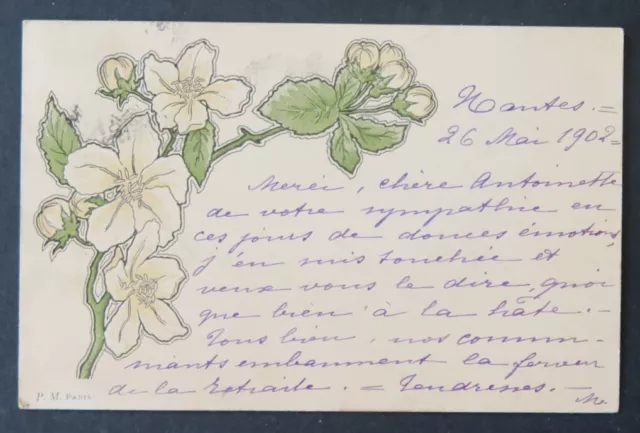 Nantes. =
26 Mai 1902 =
Merci, chère Antoinette
de votre sympathie en
ces jours de douces émotions,
j'en suis touchée et
veux vous le dire, quoi
que bien à la hâte. -
Tous bien, nos commu-
niants embaument la ferveur
de la Retraite. = Tendresses. -
M.
P. M. PARIS